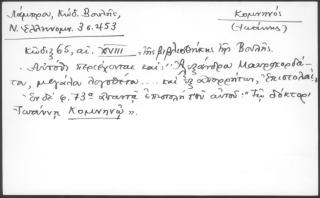 Λάμπρου, Κώδ. Βουλῆς,
Ν. Ἑλληνομν. 3 σ. 453
Κομνηνός
(Ἰωάννης)
Κῶδιξ 65, αἰ. XVIII, τῆς βιβλιοθήκης τῆς Βουλῆς.
Αὐτόθι περιέχονται καὶ "Ἀλεξάνδρου Μαυροκορδά-
του, μεγάλου λογοθέτου ... καὶ ἐξ ἀπορρήτων, Ἐπιστολαί,
Ἐν δὲ φ. 73α ἀπαντᾷ ἐπιστολὴ τοῦ αὐτοῦ "Τῷ δόκτορι
Ἰωάννῃ Κομνηνῷ".